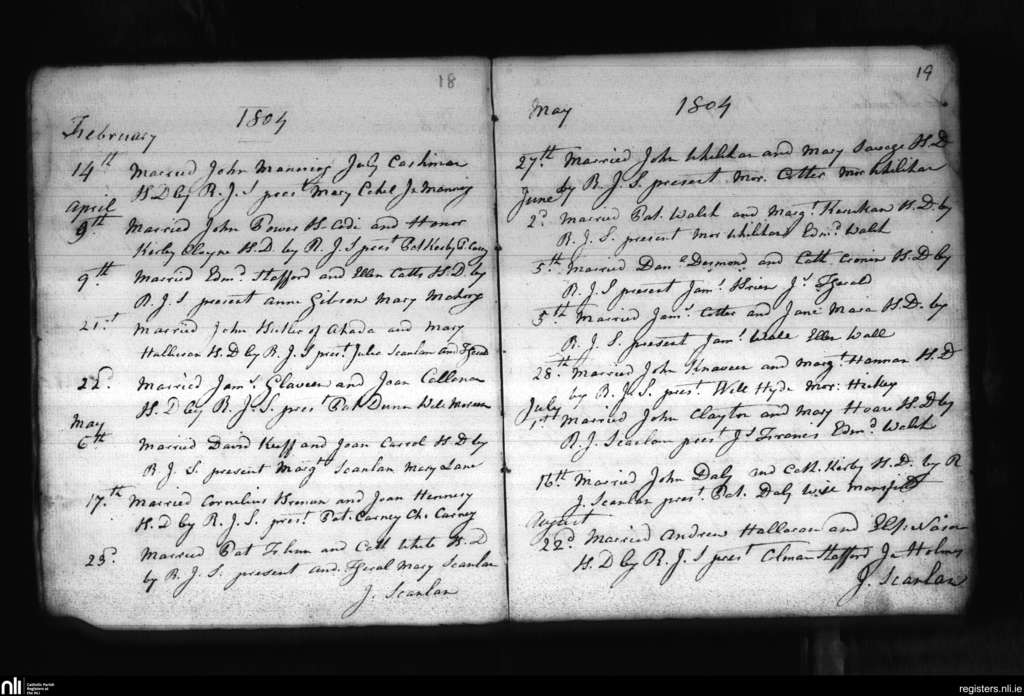 18
1804
February
14th Married John Manning July Cashman
H.D by R. J. S prest Mary Jn Manning
April
9th Married John Power H. and Honor
Kerby Cloyne H.D by R. J S prest Pat Kerby
9th Married Edmd Stafford and Ellen Cotte H.D by
R. J. S present Anne Gibson Mary Mahony
21st Married John of Ahada and Mary
Halloran H.D by R. J S prest Julia Scanlan and
22d Married Jams Glaveen and Joan
H.D by R. J. S. prest Pat Dunn Wm
May
6th Married David Keeff and Joan Carrol H.D by
R. J. S. present Margt Scanlan Mary Lane
17th Married Cornelius and Joan Hennesy
H.D by R. J. S. prest Pat. Carney Ch. Carney
23d Married Pat and Cath White H.D
by R. J. S. present and. Mary Scanlan
J. Scanlan
19
May 1804
27th Married John Whelihan and Mary Savage H.D
by R. J. S. present Mor. Cotter Mor Whelihan
June
2d Married Pat. Walsh and Margt H.D. by
R. J. S. present Mor Whelihan Edmd Walsh
5th Married Danl Desmond and Cath Cronin H.D by
R. J. S present Jams
5th Married Jams Cotter and Jane Mara H.D. by
R. J. S. present Jams Wall Ellen Wall
28th Married John and Margt Hannan H.D
by R. J. S. prest Will Hyde Mor: Hickey
July
1st Married John Clayton and Mary Hoare H.D by
R. J. Scanlan prest Js Francis Edmd Walsh
16th Married John Daly and Cath. Kerby H.D. by R
J. Scanlan prest Pat. Daly Will Mansfield
August
22d Married Andrew Halloran and
H.D by R. J. S prest Colman Stafford Jn Holmes
J. Scanlan
nli Catholic Parish Registers at the NLI
registers.nli.ie